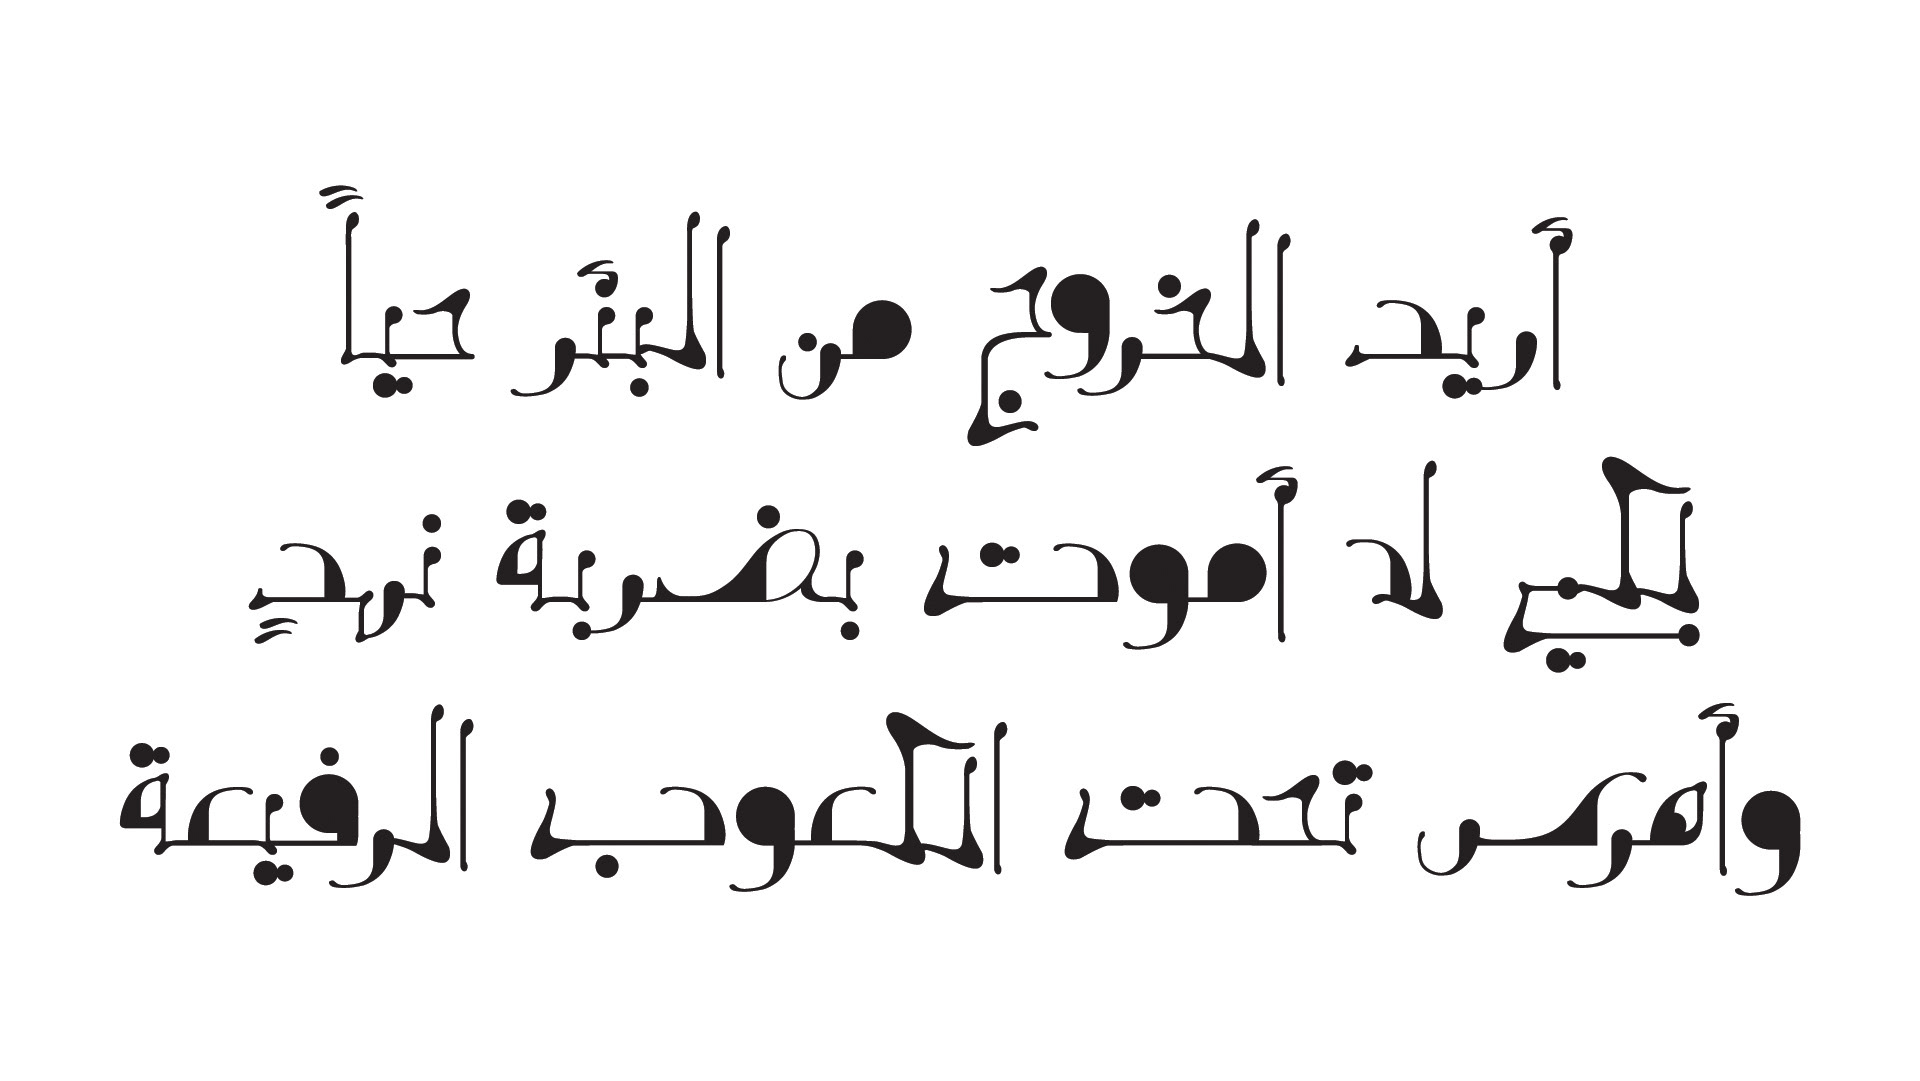 أريد الخروج من البئر حياً
لكي لا أموت بضربة نهدٍ
وأهرس تحت الكعوب الرفيعة